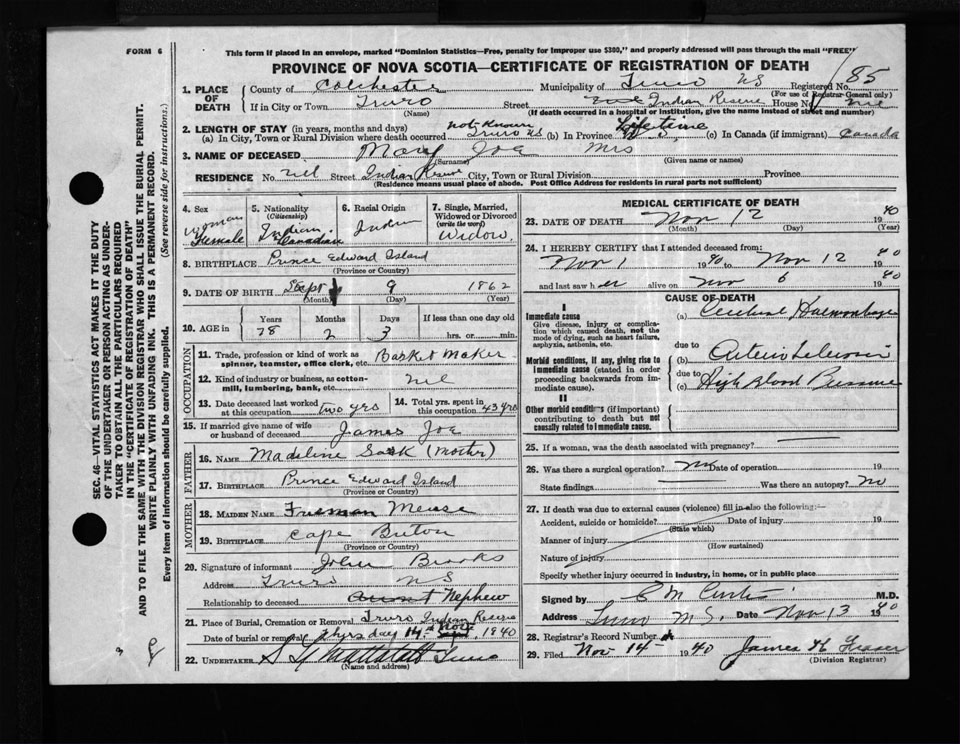 FORM 6
This form if placed in an envelope, marked "Dominion Statistics—Free, penalty for improper use $300," and properly addressed will pass through the mail "FREE"
PROVINCE OF NOVA SCOTIA—CERTIFICATE OF REGISTRATION OF DEATH
85
1. PLACE OF DEATH
County of Colchester Municipality of Truro NS Registered No.
(For use of Registrar General only)
If in City or Town Truro Street Indian Reserve House No. nil
(Name) (If death occurred in a hospital or institution, give the name instead of street and number)
2. LENGTH OF STAY (in years, months and days)
(a) In City, Town or Rural Division where death occurred not known Truro NS (b) In Province Lifetime (c) In Canada (if immigrant) Canada
3. NAME OF DECEASED Mary Joe Mrs
(Surname) (Given name or names)
RESIDENCE No. nil Street Indian Reserve City, Town or Rural Division Province
(Residence means usual place of abode. Post Office Address for residents in rural parts not sufficient)
4. Sex woman Female
5. Nationality (Citizenship) Indian Canadian
6. Racial Origin Indian
7. Single, Married, Widowed or Divorced (write the word) Widow.
8. BIRTHPLACE Prince Edward Island
(Province or Country)
9. DATE OF BIRTH Sept 9 1862
(Month) (Day) (Year)
10. AGE in Years Months Days If less than one day old
78 2 3 hrs. or min.
OCCUPATION
11. Trade, profession or kind of work as spinner, teamster, office clerk, etc. Basket Maker
12. Kind of industry or business, as cotton-mill, lumbering, bank, etc. nil
13. Date deceased last worked at this occupation two yrs
14. Total yrs. spent in this occupation 43 yrs
15. If married give name of wife or husband of deceased James Joe
FATHER
16. NAME Madeline Sark (mother)
17. BIRTHPLACE Prince Edward Island
(Province or Country)
MOTHER
18. MAIDEN NAME Freeman Meuse
19. BIRTHPLACE Cape Breton
(Province or Country)
20. Signature of informant John Brooks
Address Truro NS
Relationship to deceased Nephew
21. Place of Burial, Cremation or Removal Truro Indian Reserve
Date of burial or removal Thursday 14 Nov 1940
22. UNDERTAKER Truro
(Name and address)
MEDICAL CERTIFICATE OF DEATH
23. DATE OF DEATH Nov 12 1940
(Month) (Day) (Year)
24. I HEREBY CERTIFY that I attended deceased from:
Nov 1 1940 to Nov 12 1940
and last saw her alive on Nov 6 1940
CAUSE OF DEATH
I
Immediate cause
Give disease, injury or complication which caused death, not the mode of dying, such as heart failure, asphyxia, asthenia, etc.
(a) Cerebral Haemorrhage
Morbid conditions, if any, giving rise to immediate cause (stated in order proceeding backwards from immediate cause).
due to
(b) Arterio Sclerosis
due to
(c) High Blood Pressure
II
Other morbid conditions (if important) contributing to death but not causally related to immediate cause.
25. If a woman, was the death associated with pregnancy?
26. Was there a surgical operation? no Date of operation 19
State findings Was there an autopsy? no
27. If death was due to external causes (violence) fill in also the following:—
Accident, suicide or homicide? Date of injury 19
(State which)
Manner of injury
(How sustained)
Nature of injury
Specify whether injury occurred in industry, in home, or in public place
Signed by C M Curtis M.D.
Address Truro N.S. Date Nov 13 1940
28. Registrar's Record Number
29. Filed Nov 14 1940 James H Fraser
(Division Registrar)
SEC. 46—VITAL STATISTICS ACT MAKES IT THE DUTY OF THE UNDERTAKER OR PERSON ACTING AS UNDERTAKER TO OBTAIN ALL THE PARTICULARS REQUIRED IN THE "CERTIFICATE OF REGISTRATION OF DEATH" AND TO FILE THE SAME WITH THE DIVISION REGISTRAR WHO SHALL ISSUE THE BURIAL PERMIT.
WRITE PLAINLY WITH UNFADING INK. THIS IS A PERMANENT RECORD.
Every item of information should be carefully supplied. (See reverse side for instructions.)